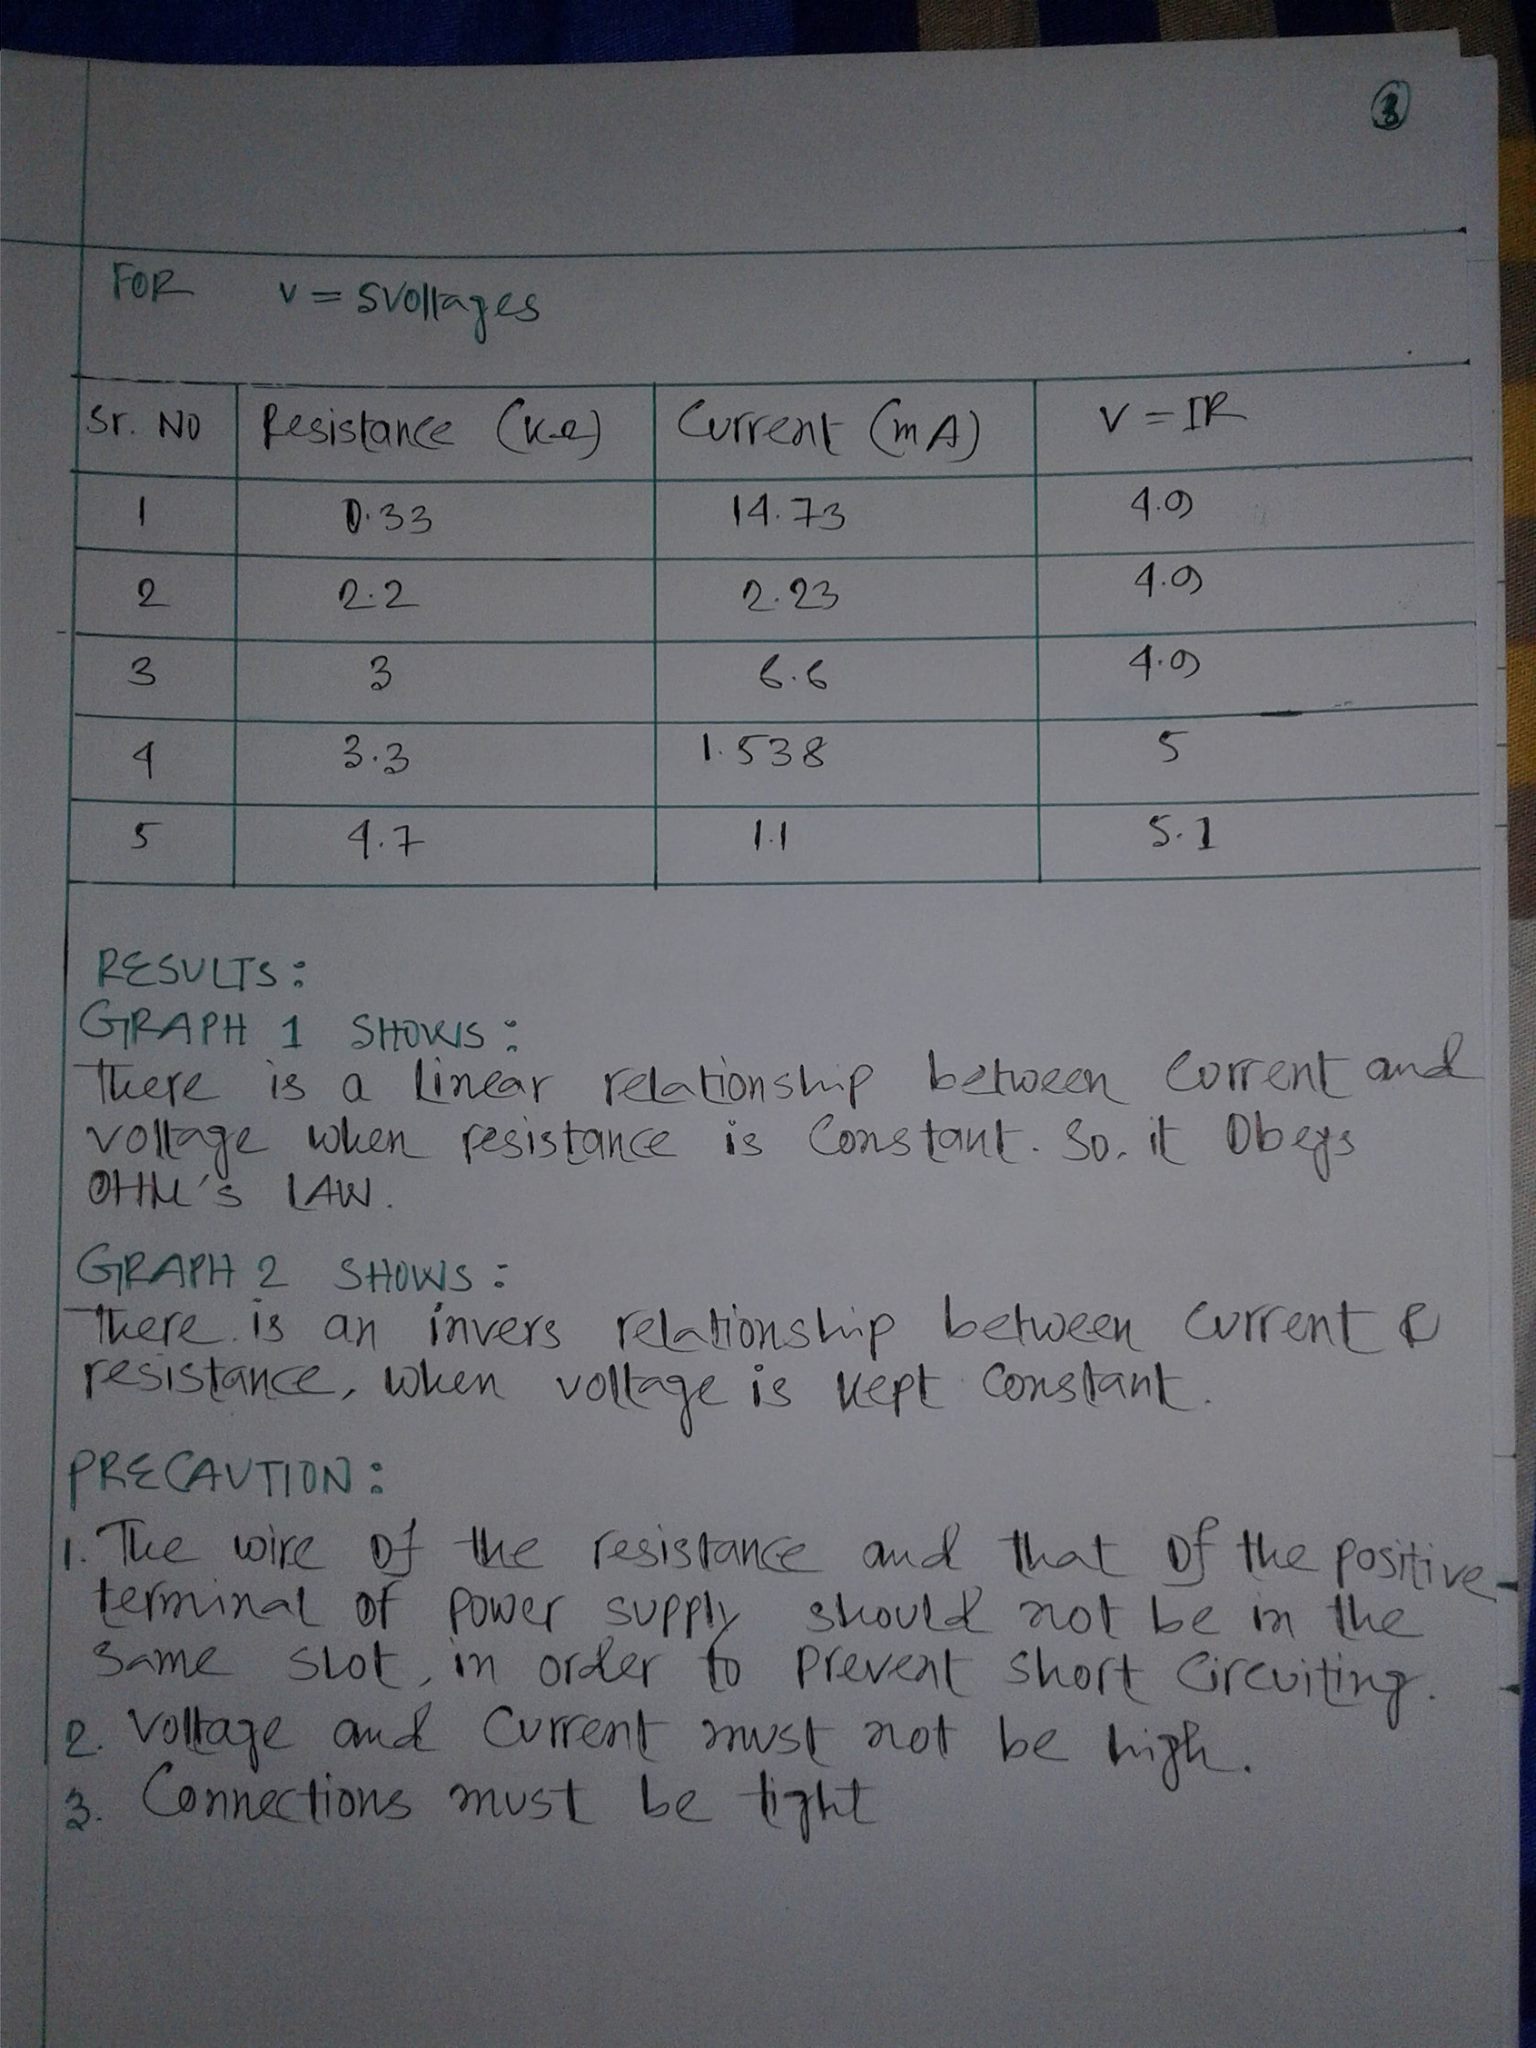 3
FOR V = 5Voltages
Sr. NO Resistance (KΩ) Current (mA) V = IR
1 0.33 14.73 4.9
2 2.2 2.23 4.9
3 3 6.6 4.9
4 3.3 1.538 5
5 4.7 1.1 5.1
RESULTS:
GRAPH 1 SHOWS:
There is a linear relationship between Current and
voltage when resistance is Constant. So, it Obeys
OHM's LAW.
GRAPH 2 SHOWS:
There is an invers relationship between Current &
resistance, when voltage is kept Constant.
PRECAUTION:
1. The wire of the resistance and that of the positive
terminal of power supply should not be in the
same slot, in order to prevent short Circuiting.
2. Voltage and Current must not be high.
3. Connections must be tight